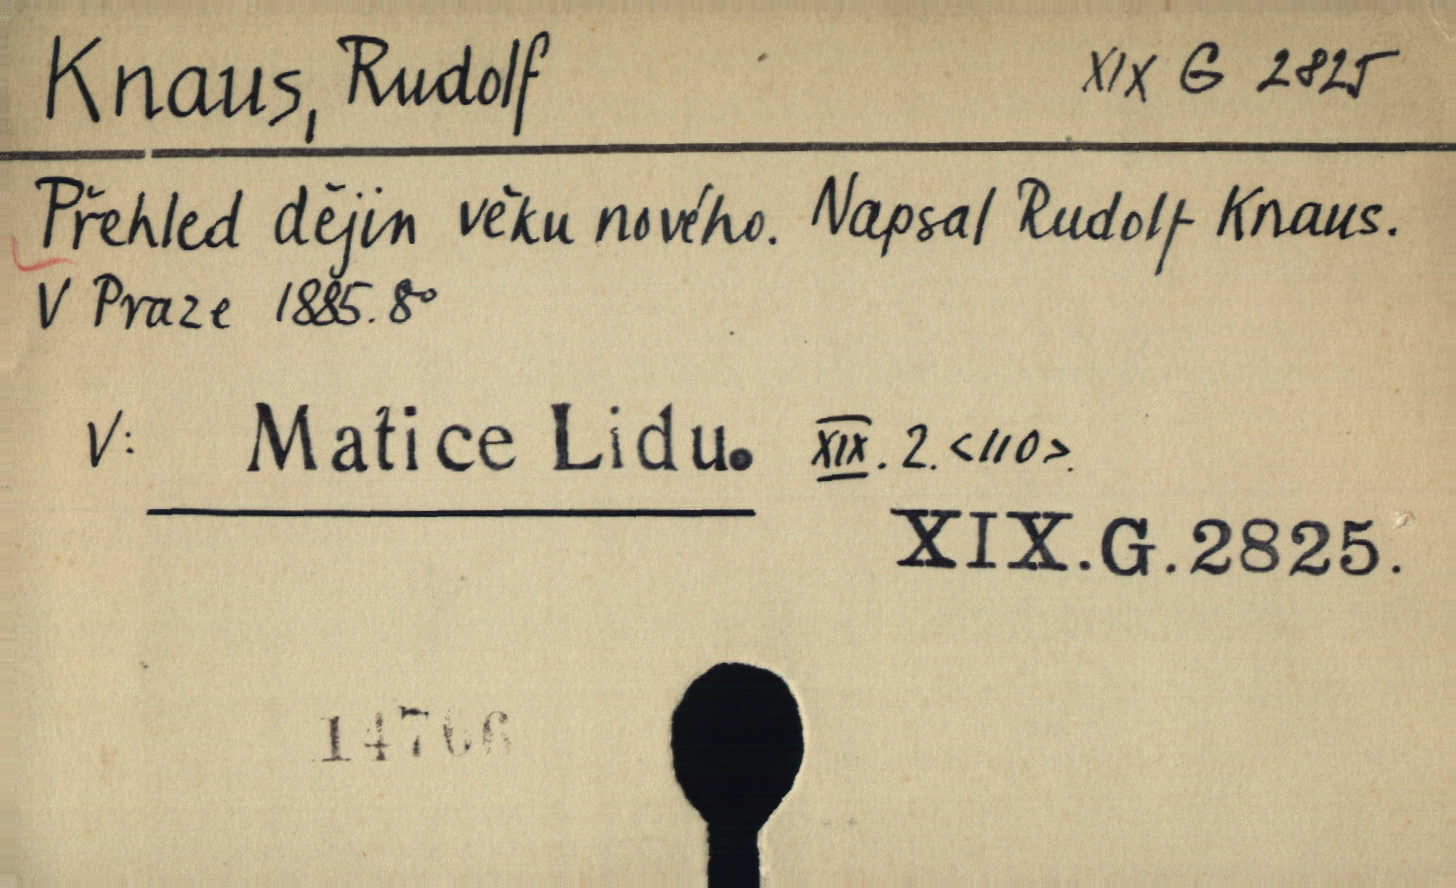 Knaus, Rudolf XIX G 2825
Přehled dějin věku nového. Napsal Rudolf Knaus.
V Praze 1885. 8°
V: Matice Lidu. XIX. 2. <110>.
XIX.G.2825.
14766